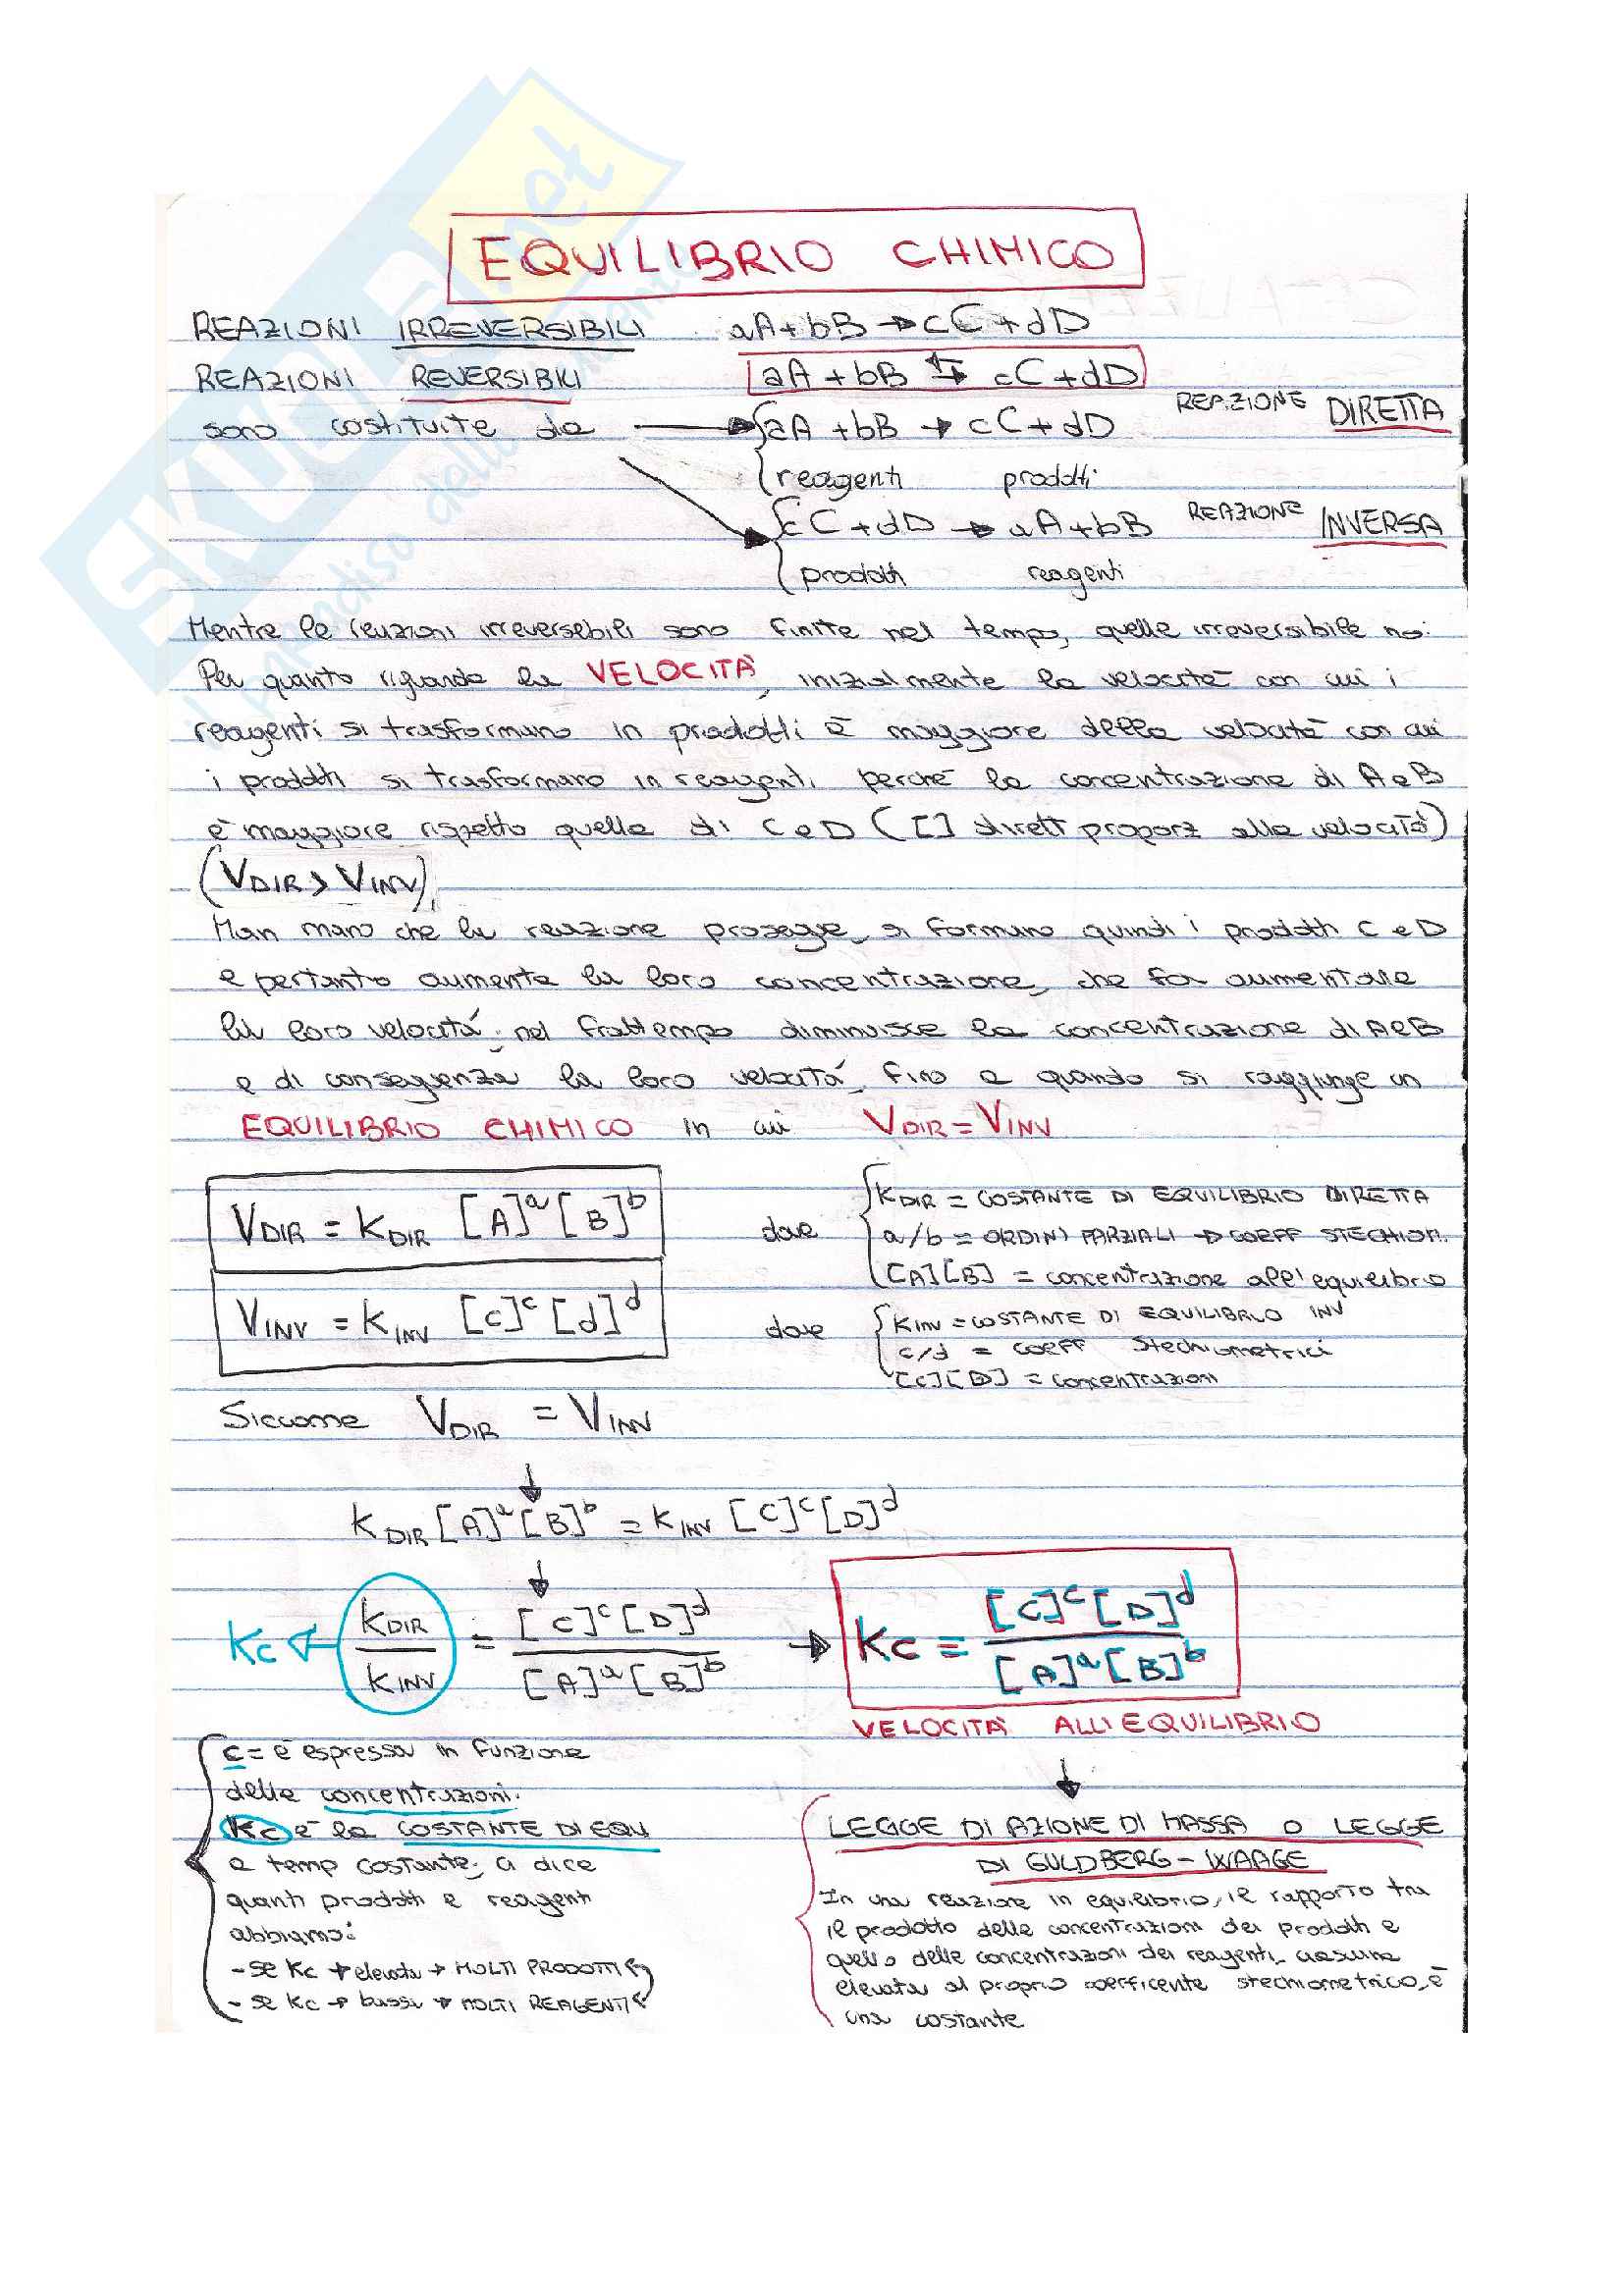 EQUILIBRIO CHIMICO
REAZIONI IRREVERSIBILI aA+bB → cC+dD
REAZIONI REVERSIBILI aA+bB ⇆ cC+dD
sono costituite da → aA+bB → cC+dD REAZIONE DIRETTA
reagenti prodotti
cC+dD → aA+bB REAZIONE INVERSA
prodotti reagenti
Mentre le reazioni irreversebili sono finite nel tempo, quelle irreversibile no.
Per quanto riguarda la VELOCITÀ, inizialmente la velocità con cui i
reagenti si trasformano in prodotti è maggiore della velocità con cui
i prodotti si trasformano in reagenti, perché la concentrazione di A e B
è maggiore rispetto quella di C e D ([] dirett proporz alla velocità)
(VDIR > VINV).
Man mano che la reazione prosegue, si formano quindi i prodotti C e D
e pertanto aumenta la loro concentrazione, che fa aumentare
la loro velocità; nel frattempo diminuisce la concentrazione di A e B
e di conseguenza la loro velocità, fino a quando si raggiunge un
EQUILIBRIO CHIMICO in cui VDIR = VINV
VDIR = KDIR [A]ᵃ[B]ᵇ dove KDIR = COSTANTE DI EQUILIBRIO DIRETTA
a/b = ORDINI PARZIALI → COEFF STECHIOM.
[A][B] = concentrazione all'equilibrio
VINV = KINV [C]ᶜ[d]ᵈ dove KINV = COSTANTE DI EQUILIBRIO INV
c/d = COEFF stechiometrici
[C][D] = concentrazioni
Siccome VDIR = VINV
↓
KDIR[A]ᵃ[B]ᵇ = KINV [C]ᶜ[D]ᵈ
↓
Kc ← KDIR/KINV = [C]ᶜ[D]ᵈ/[A]ᵃ[B]ᵇ → Kc = [C]ᶜ[D]ᵈ/[A]ᵃ[B]ᵇ
VELOCITÀ ALL'EQUILIBRIO
c = è espressa in funzione
delle concentrazioni.
Kc è la COSTANTE DI EQU
a temp costante; ci dice
quanti prodotti e reagenti
abbiamo:
- se Kc → elevata → MOLTI PRODOTTI
- se Kc → bassa → MOLTI REAGENTI
↓
LEGGE DI AZIONE DI MASSA O LEGGE
DI GULDBERG-WAAGE
In una reazione in equilibrio, il rapporto tra
il prodotto delle concentrazioni dei prodotti e
quello delle concentrazioni dei reagenti, ciascuna
elevata al proprio coefficente stechiometrico, è
una costante
SKUOLA.net
il paradiso dello studente